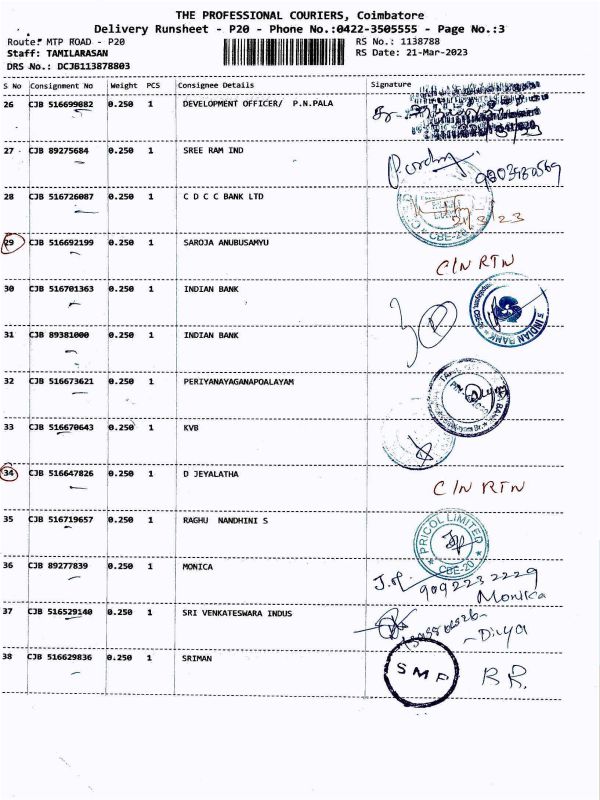 THE PROFESSIONAL COURIERS, Coimbatore
Delivery Runsheet - P20 - Phone No.:0422-3505555 - Page No.:3
Route: MTP ROAD - P20 RS No.: 1138788
Staff: TAMILARASAN RS Date: 21-Mar-2023
DRS No.: DCJB113878803
S No Consignment No Weight PCS Consignee Details Signature
26 CJB 516699082 0.250 1 DEVELOPMENT OFFICER/ P.N.PALA
27 CJB 89275684 0.250 1 SREE RAM IND
28 CJB 516726087 0.250 1 C D C C BANK LTD
CBE-20
29 CJB 516692199 0.250 1 SAROJA ANUBUSAMYU
C/N RTN
30 CJB 516701363 0.250 1 INDIAN BANK
INDIAN BANK
31 CJB 89381000 0.250 1 INDIAN BANK
32 CJB 516673621 0.250 1 PERIYANAYAGANAPOALAYAM
33 CJB 516670643 0.250 1 KVB
34 CJB 516647826 0.250 1 D JEYALATHA
C/N RTN
35 CJB 516719657 0.250 1 RAGHU NANDHINI S
PRICOL LIMITED
CBE-20
36 CJB 89277839 0.250 1 MONICA
9092232229
Monica
37 CJB 516529140 0.250 1 SRI VENKATESWARA INDUS
Divya
38 CJB 516629836 0.250 1 SRIMAN
SMF
R.R.